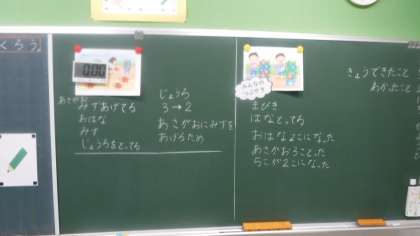 くろう
000
あさがお
みずあげてる
おはな
みず
じょうろをとってる
じょうろ
3→2
あさがおにみずを
あげるため
みんなの
まびき
はなとってる
おはなよこになった
あさがお
2こになった
きょうできたこと
わかったこと